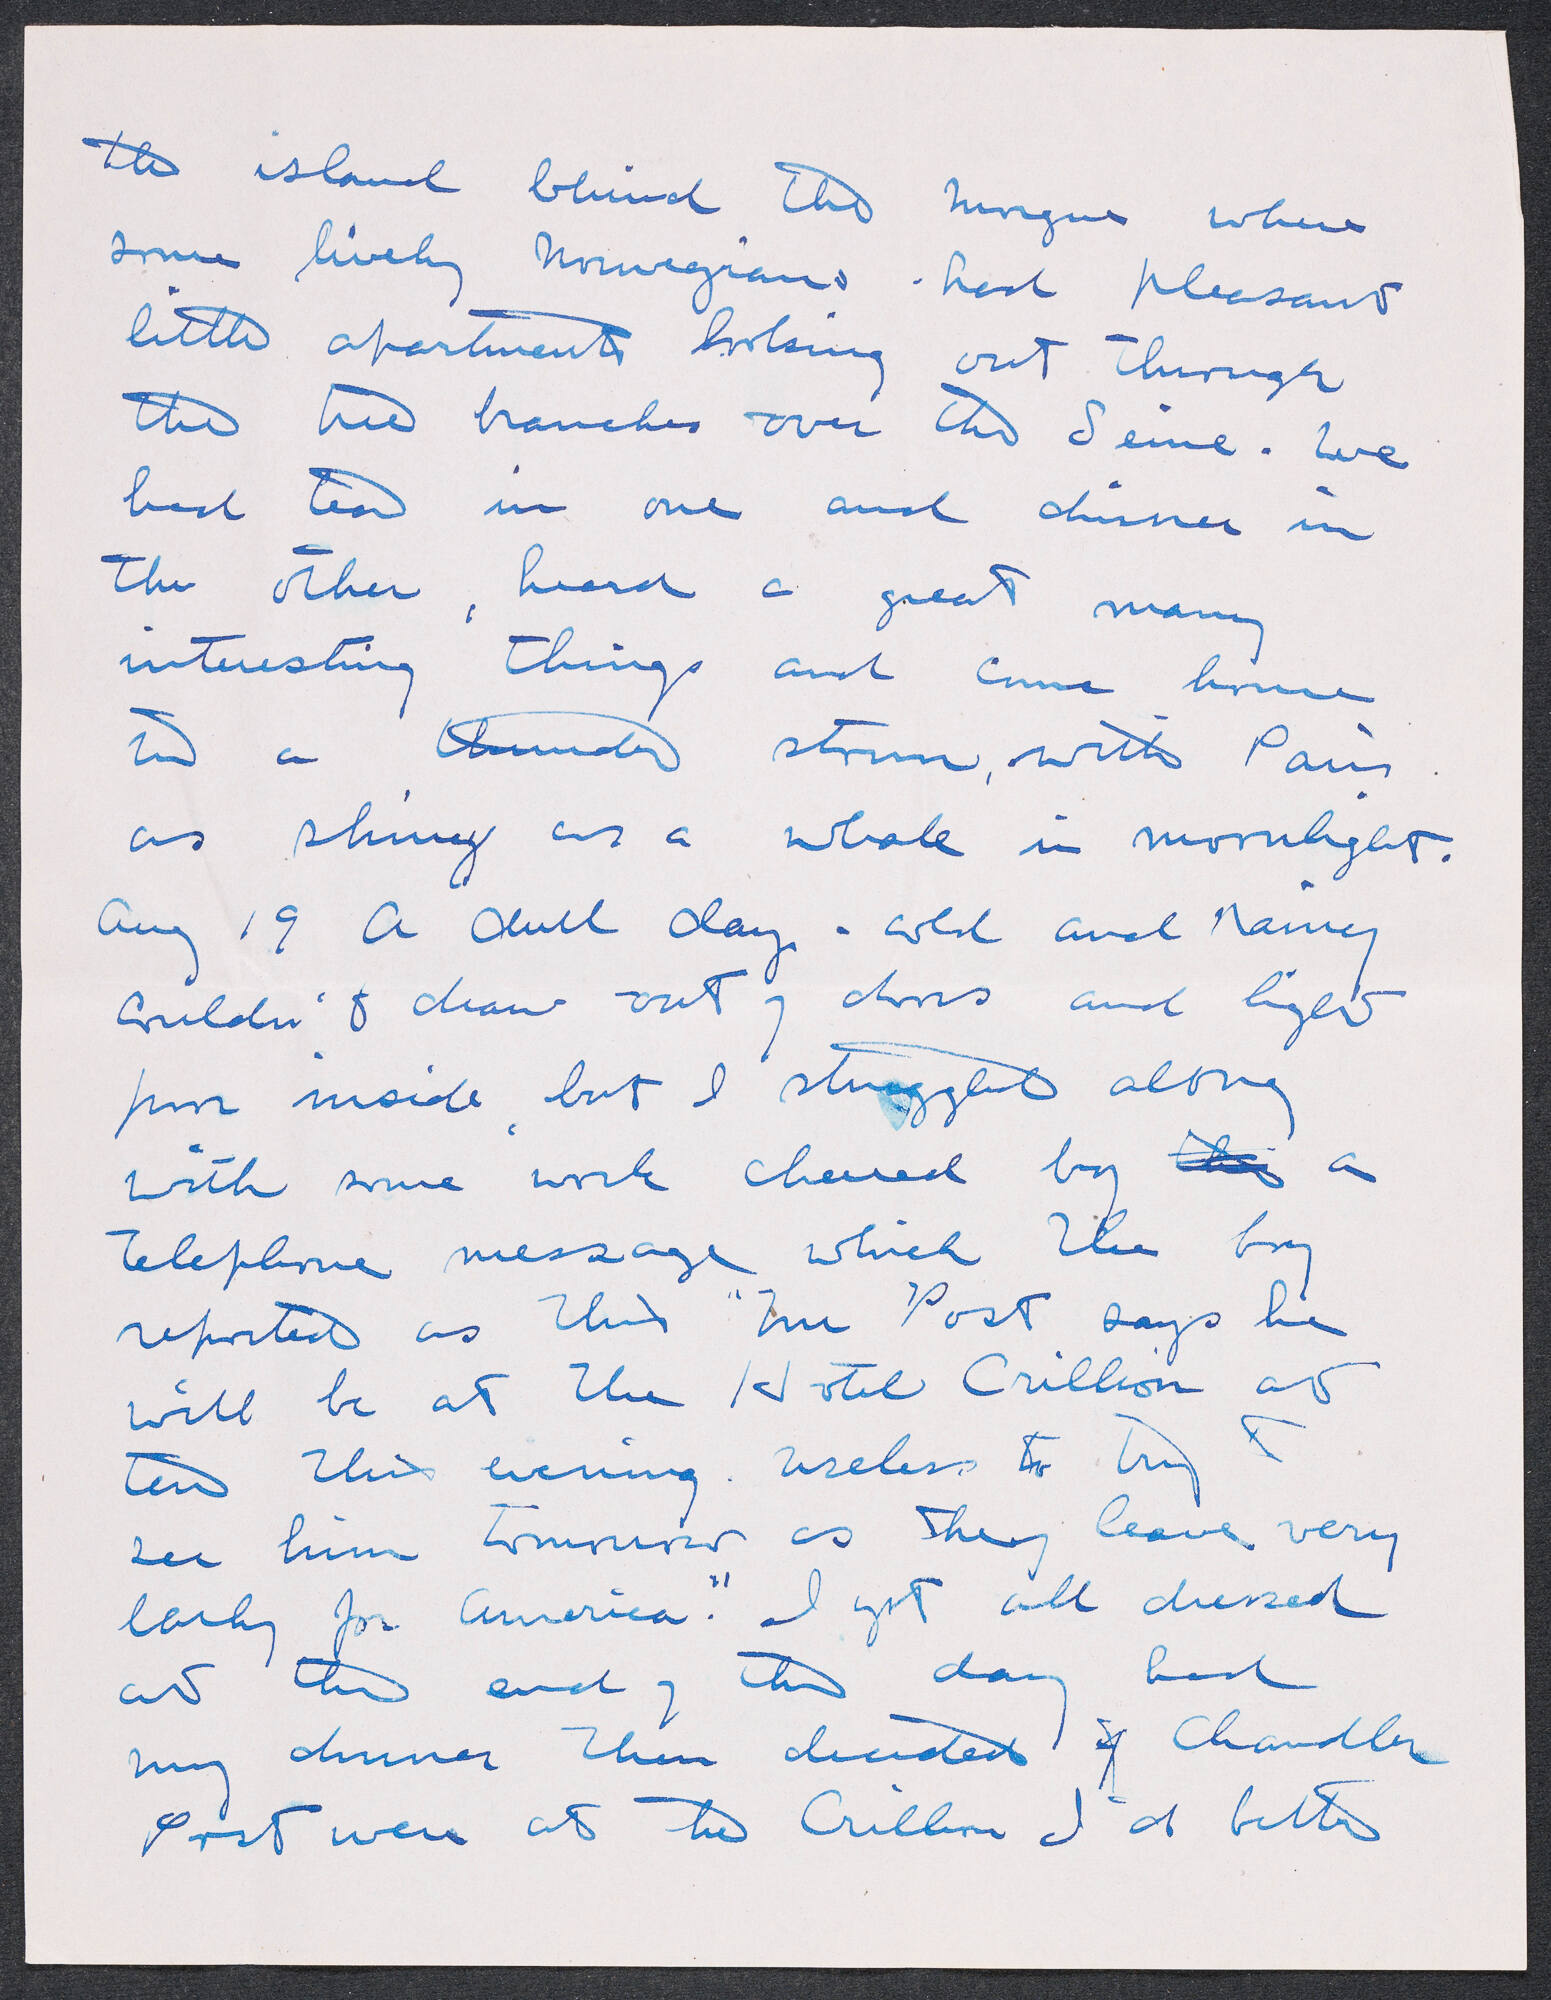 the island behind the morgue where
some lively Norwegians had pleasant
little apartments looking out through
the tree branches over the Seine. We
had tea in one and dinner in
the other, heard a great many
interesting things and came home
in a thunder storm, with Paris
as shiny as a whale in moonlight.
Aug 19 A dull day - cold and rainy
couldn't draw out of doors and light
poor inside, but I struggled along
with some work cheered by a
telephone message which the boy
reported as this "Mr Post says he
will be at the Hotel Crillion at
ten this evening. Useless to try to
see him tomorrow as they leave very
early for America." I got all dressed
at the end of the day had
my dinner then decided if Chandler
Post were at the Crillon I'd better